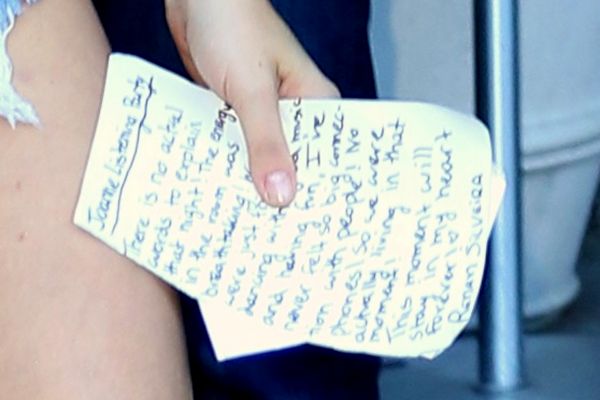 Joanne Listening Party
There is no actual
words to explain
that night! The energy
in the room was
breathtaking!
were just
dancing with music
and having fun. I've
never felt so big connec-
tion with people! No
phones! so we were
actually living in that
moment!
This moment will
stay in my heart
Forever!